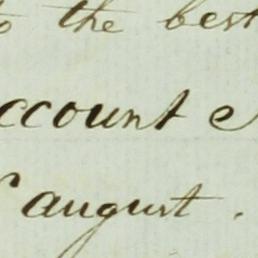 to the best
ccount
august.